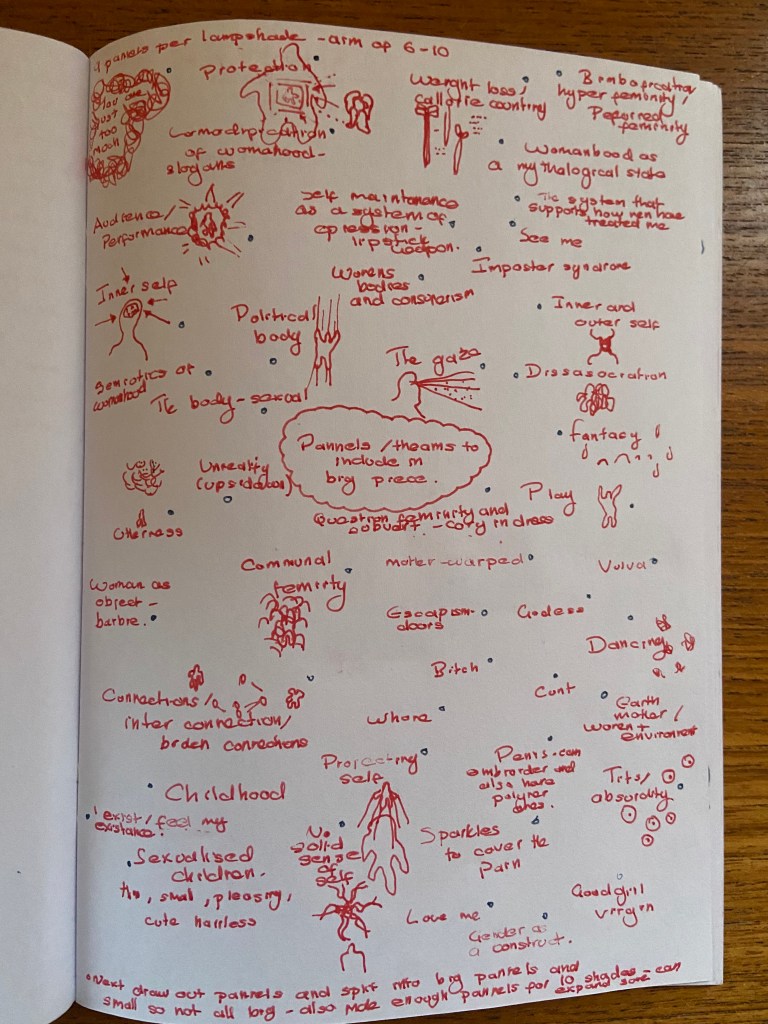 -1 pannels per lampshade - aim of 6-10
You are
just
too
much
Protection
Weight loss/
callorie counting
Bimbofication/
hyper feminity/
Peformed
feminity
Comodification
of womahood -
slogans
Womanhood as
a mythalogical state
Audience/
Performance
Self maintanance
as a system of
opression -
lipstick
weapon.
The system that
supports how men have
treated me
See me
Imposter syndrome
Womens
bodies
and consumerism
Inner self
Political
body
Inner and
outer self
The gaze
Semiotics of
womanhood
The body - sexual
Dissasociation
Pannels/theams to
include in
big piece.
fantacy
Unreality
(upsidedown)
Play
Otherness
Question feminity and
- cory in dress
Communal
feminity
mother - warped
Vulva
Woman as
object -
barbie.
Escapism -
doors
Godess
Dancing
Bitch
Cunt
Connections/
inter connection/
broken connections
Whore
Earth
mother/
women +
environment
Projecting
self
Penis - can
embroider and
also have
polymer
ones.
Tits/
absurdity
Childhood
I exist/feel my
existance.
No
solid
sense
of
self
Sparkles
to cover the
Pain
Sexualised
children.
thin, small, pleasing,
cute hairless
Love me
Gender as
a construct.
Good girl
virgin
Next draw out pannels and split into big pannels and
small so not all big - also make enough pannels for 10 shades - can
expand some